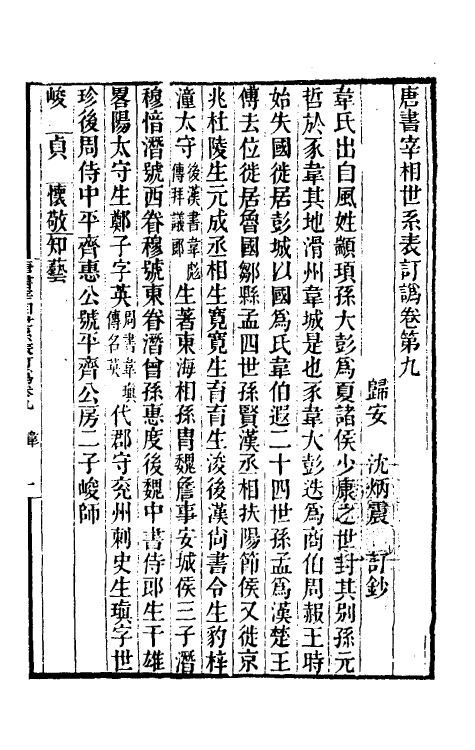 唐書宰相世系表訂譌卷第九
歸安 沈炳震 訂鈔
韋氏出自風姓顓頊孫大彭為夏諸侯少康之世封其別孫元
哲於豕韋其地滑州韋城是也豕韋大彭迭為商伯周赧王時
始失國徙居彭城以國為氏韋伯遐二十四世孫孟為漢楚王
傅去位徙居魯國鄒縣孟四世孫賢漢丞相扶陽節侯又徙京
兆杜陵生元成丞相生寬寬生育育生浚後漢尚書令生豹梓
潼太守後漢書韋彪傳拜議郎生著東海相孫胄魏詹事安城侯三子潛
穆愔潛號西眷穆號東眷潛曾孫惠度後魏中書侍郎生千雄
畧陽太守生鄭子字英周書韋瑱傳名英代郡守兖州刺史生瑱字世
珍後周侍中平齊惠公號平齊公房二子峻師
峻 貞 懷敬知藝
韋 一